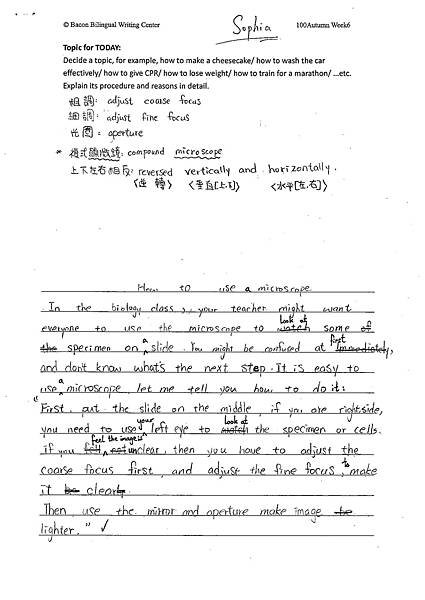 © Bacon Bilingual Writing Center Sophia 100Autumn Week6
Topic for TODAY:
Decide a topic, for example, how to make a cheesecake/ how to wash the car
effectively/ how to give CPR/ how to lose weight/ how to train for a marathon/ ...etc.
Explain its procedure and reasons in detail.
粗調: adjust coarse focus
細調: adjust fine focus
光圈= aperture
* 複式顯微鏡: compound microscope
上下左右相反: reversed vertically and horizontally.
<逆轉> <垂直[上,下]> <水平[左,右]>
How to use a microscope
In the biology class, your teacher might want
everyone to use the microscope to watch look at some of
the specimen on a slide. You might be confused at first immediately,
and don't know what's the next step. It is easy to
use a microscope, let me tell you how to do it:
"First, put the slide on the middle, if you are rightside,
you need to use your left eye to watch look at the specimen or cells.
if you feel the image is unclear, then you have to adjust the
coarse focus first, and adjust the fine focus, to make
it be clear.
Then, use the mirror and aperture make image be
lighter." ✓